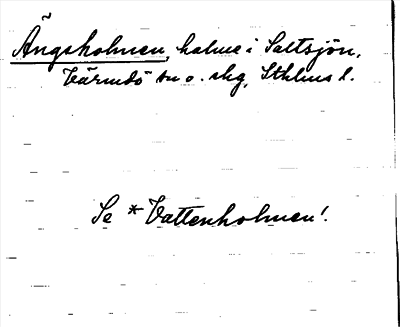 Ängsholmen, holme i Saltsjön,
Värmdö sn o. skg, Sthlms l.
Se *Vattenholmen!